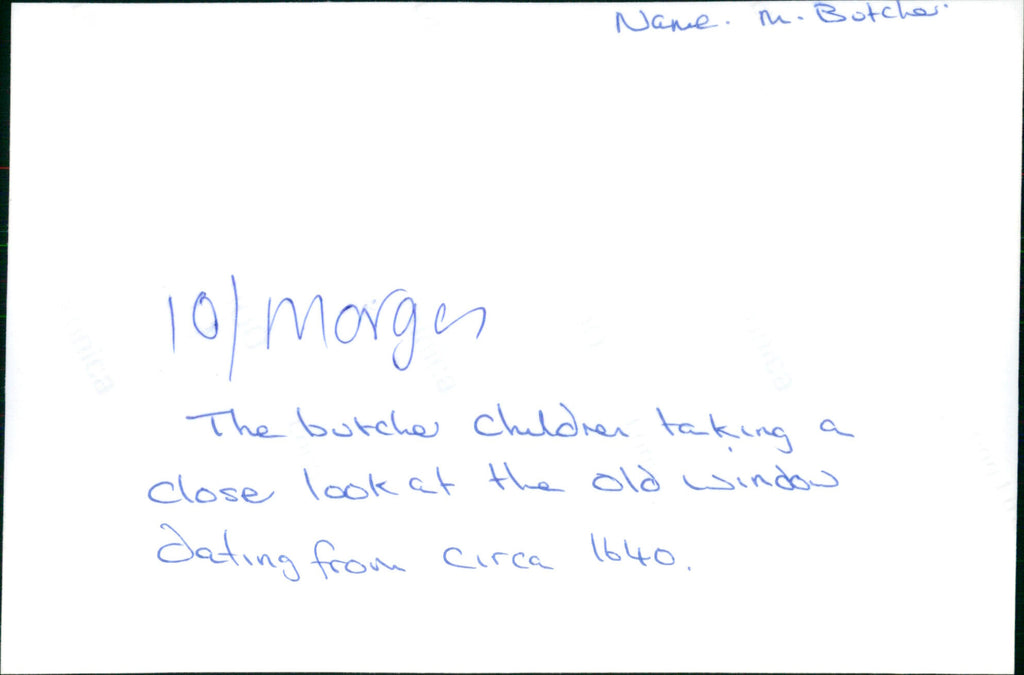 Name. M. Butcher.
10/Morgan
The butcher children taking a
close look at the old window
dating from circa 1640.